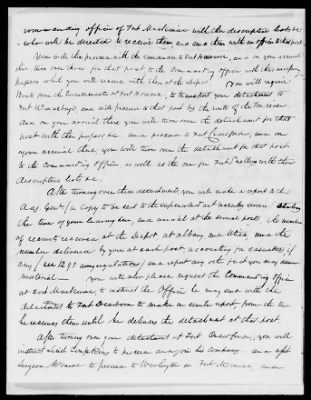 commanding officer of Fort Mackinac with the descriptive lists &c
who will be directed to receive them and send them with an officer to that post
You will then proceed with the remainder to Fort Howard, and on your arrival
turn over those for that post to the Commanding Officer with the necessary
papers which you will receive with them at the Depot. You will require
Boats from the Commandant of Fort Howard, to transport your detachment to
Fort Winnebago and will proceed to that post by the route of the Fox river
And on your arrival there you will turn over the detachment for that
post with their papers &c. and proceed to Fort Crawford, and on
your arrival there you will turn over the detachment for that post
to the Commanding Officer as well as the one for Fort Snelling with their
descriptive lists &c
After turning over these detachments, you will make a report to the
Adj. Genl. (a Copy to be sent to the superintendent recruiting service
the time of your leaving here, and arrival at the several posts the number
of recruits received at the Depot at albany, and Utica, and the
number delivered by you at each post accounting for casualties if
any (see regulations) and report any other fact you may deem
material — you will also please request the Commanding Officer
at Fort Mackinac, to instruct the Officer he may send with the
detachment to Fort Dearborn to make a similar report, from the time
he receives them until he delivers the detachment at that post
After turning over your detachment at Fort Crawford, you will
instruct Lieut to proceed and join his company. and
Surgeon to proceed to Washington or Fort Monroe, as